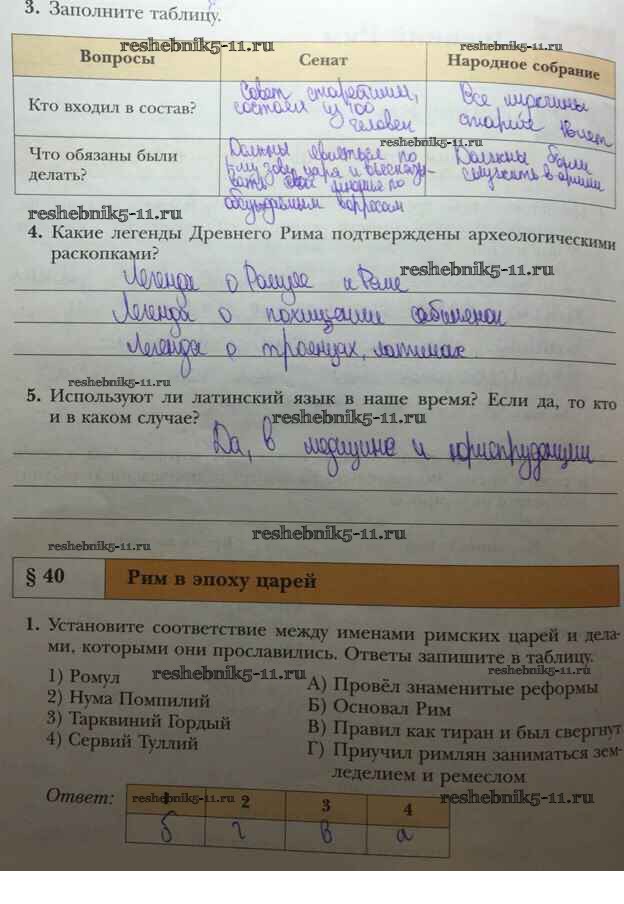 3. Заполните таблицу.
reshebnik5-11.ru
Вопросы
Сенат
Народное собрание
Кто входил в состав?
Совет старейшин,
состоял из 100
человек
Все мужчины
старше
reshebnik5-11.ru
Что обязаны были
делать?
Должны являться по
зову царя и высказы-
вать своё мнение по
обсуждаемым вопросам
Должны были
служить в армии
reshebnik5-11.ru
4. Какие легенды Древнего Рима подтверждены археологическими
раскопками?
reshebnik5-11.ru
Легенда о Ромуле и Реме
Легенда о похищении сабинянок
Легенда о троянцах, латинах.
reshebnik5-11.ru
5. Используют ли латинский язык в наше время? Если да, то кто
и в каком случае?
reshebnik5-11.ru
Да, в медицине и юриспруденции
reshebnik5-11.ru
reshebnik5-11.ru
§ 40
Рим в эпоху царей
1. Установите соответствие между именами римских царей и дела-
ми, которыми они прославились. Ответы запишите в таблицу.
reshebnik5-11.ru
reshebnik5-11.ru
1) Ромул
2) Нума Помпилий
3) Тарквиний Гордый
4) Сервий Туллий
А) Провёл знаменитые реформы
Б) Основал Рим
В) Правил как тиран и был свергнут
Г) Приучил римлян заниматься зем-
леделием и ремеслом
Ответ:
reshebnik5-11.ru
reshebnik5-11.ru
1 2 3 4
б г в а